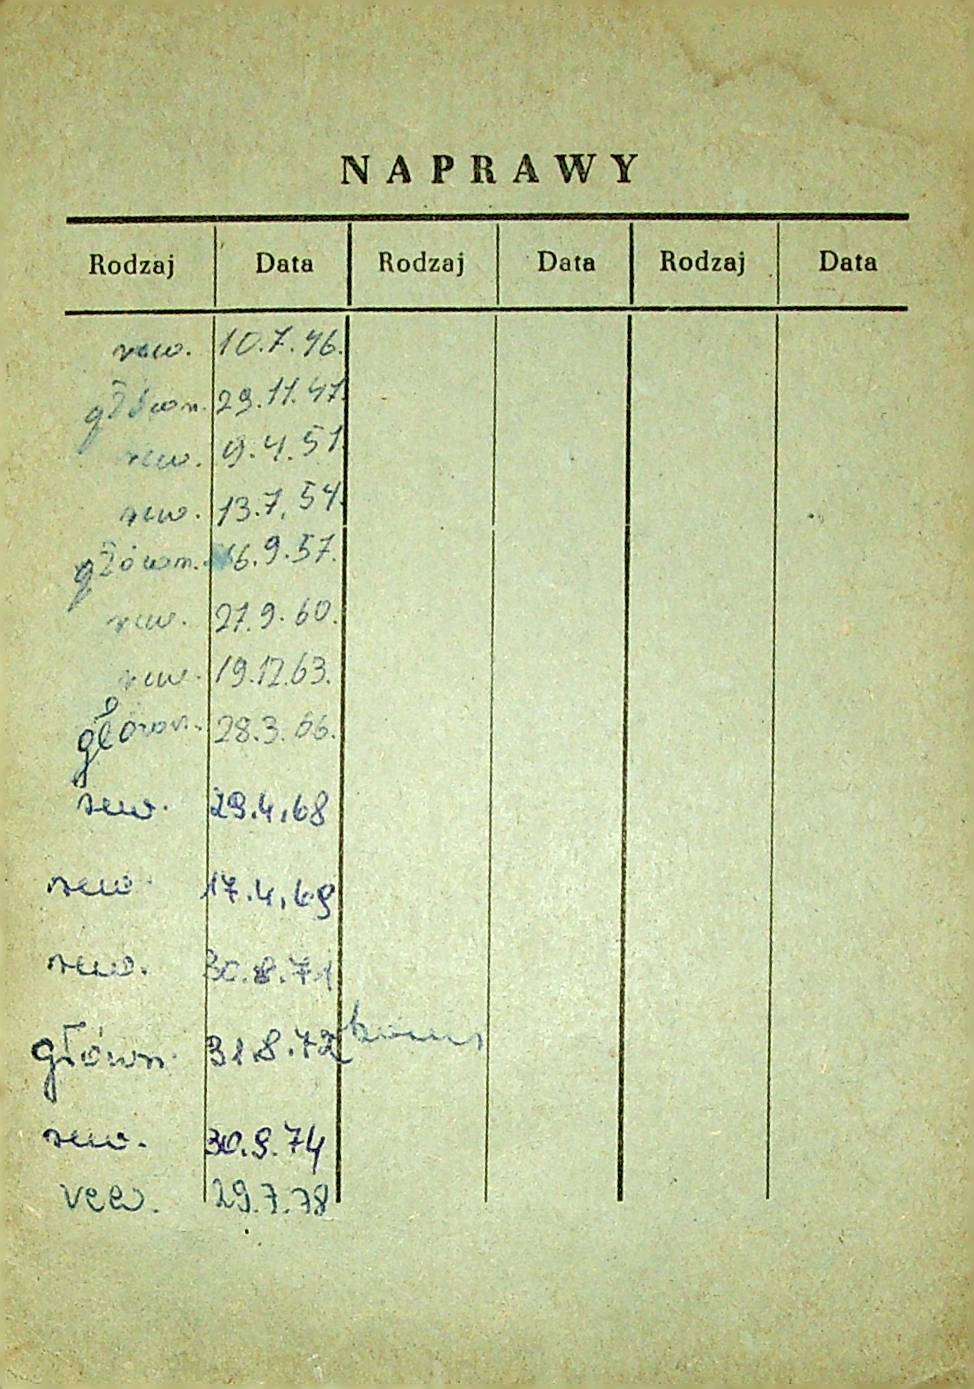 NAPRAWY
Rodzaj Data Rodzaj Data Rodzaj Data
rew. 10.7.46.
główn. 29.11.47.
rew. 9.4.51.
rew. 13.7.54.
główn. 16.9.57.
rew. 27.9.60.
rew. 19.12.63.
główn. 28.3.66.
rew. 29.4.68
rew. 17.4.69
rew. 30.8.71
główn. 31.8.72
rew. 30.9.74
rew. 29.7.78